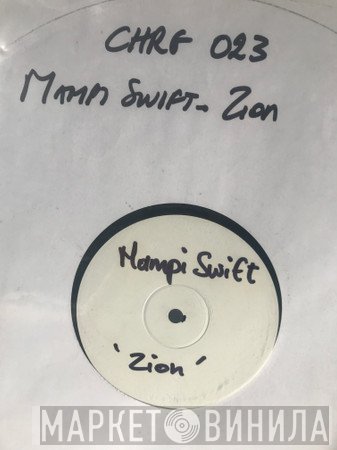 CHRG 023
MAMPI SWIFT - Zion
Mampi Swift
'Zion'
МАРКЕТ ВИНИЛА